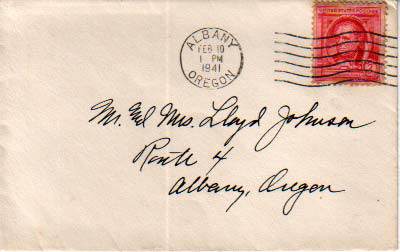 ALBANY
FEB 10
1 PM
1941
OREGON
UNITED STATES POSTAGE
Mr. & Mrs. Lloyd Johnson
Route 4
Albany, Oregon